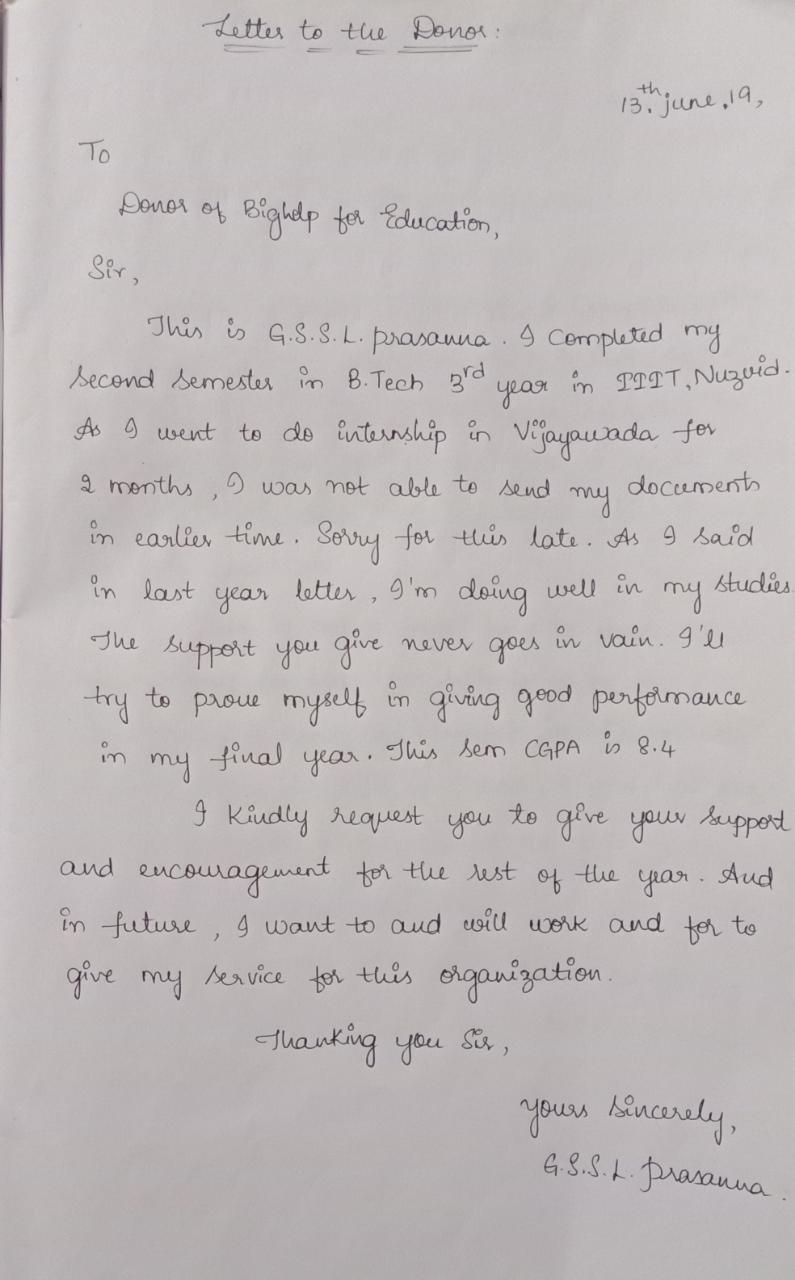 Letter to the Donor:
13.th june.19,
To
Donor of Bighelp for Education,
Sir,
This is G.S.S.L. prasanna. I completed my
second semester in B.Tech 3rd year in IIIT, Nuzvid.
As I went to do internship in Vijayawada for
2 months, I was not able to send my documents
in earlier time. Sorry for this late. As I said
in last year letter, I'm doing well in my studies
The support you give never goes in vain. I'll
try to prove myself in giving good performance
in my final year. This sem CGPA is 8.4
I kindly request you to give your support
and encouragement for the rest of the year. And
in future, I want to and will work and for to
give my service for this organization.
Thanking you Sir,
yours sincerely,
G.S.S.L. prasanna.